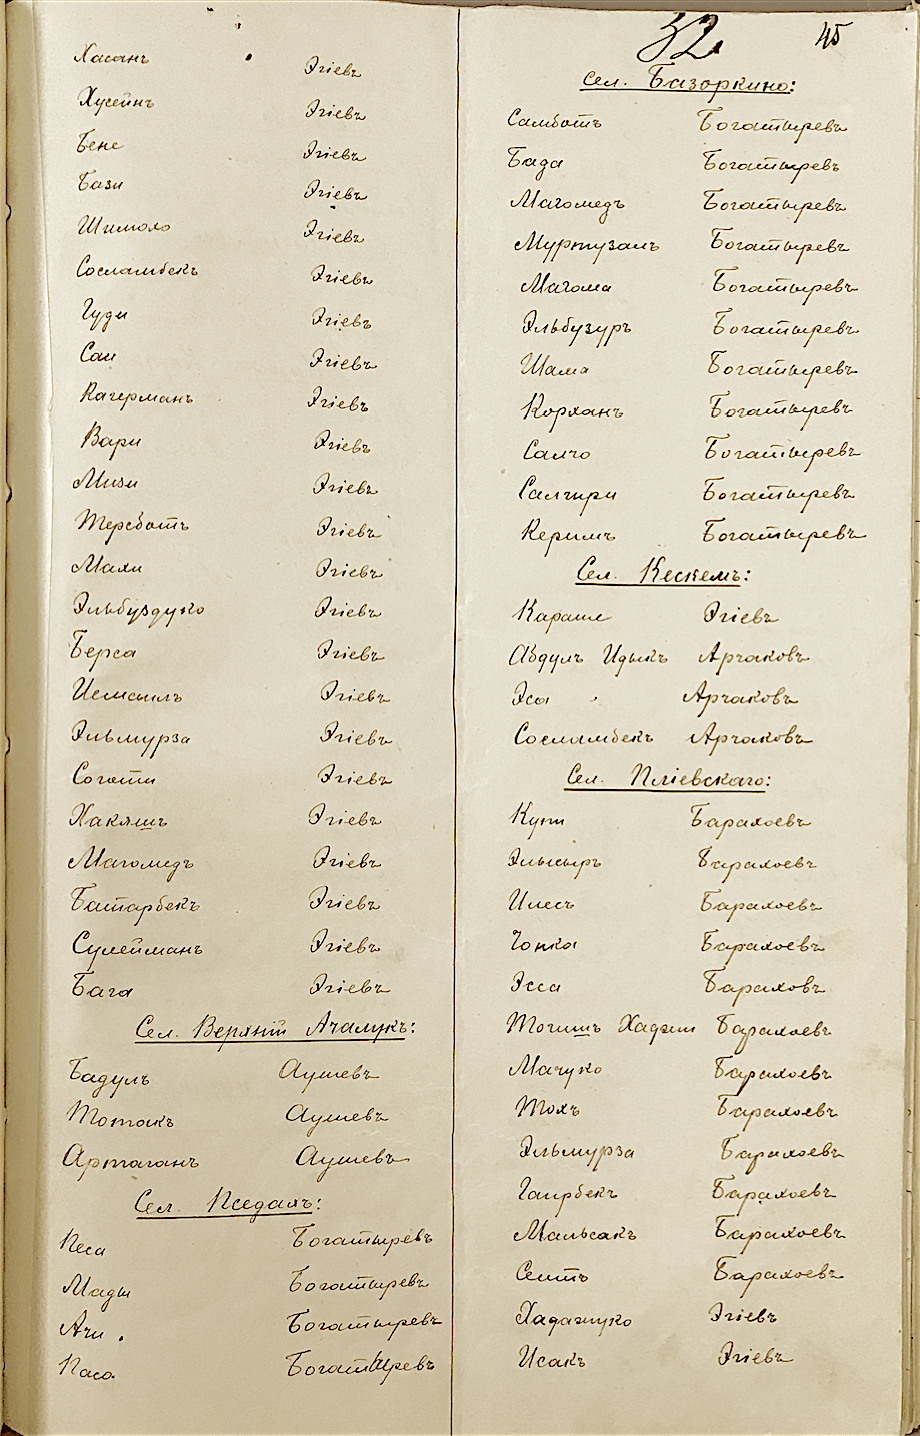 32
45
Хасанъ Эгіевъ
Хусейнъ Эгіевъ
Бене Эгіевъ
Бази Эгіевъ
Шимоло Эгіевъ
Сосламбекъ Эгіевъ
Гуди Эгіевъ
Саи Эгіевъ
Кагерманъ Эгіевъ
Вари Эгіевъ
Мизи Эгіевъ
Терсботъ Эгіевъ
Мали Эгіевъ
Эльбуздуко Эгіевъ
Берса Эгіевъ
Исмаилъ Эгіевъ
Эльмурза Эгіевъ
Согати Эгіевъ
Хакяшъ Эгіевъ
Магомедъ Эгіевъ
Батарбекъ Эгіевъ
Сулейманъ Эгіевъ
Бага Эгіевъ
Сел. Верхній Ачалукъ:
Бадулъ Аушевъ
Тотакъ Аушевъ
Артаганъ Аушевъ
Сел. Пседахъ:
Кеса Богатыревъ
Мады Богатыревъ
Ачи Богатыревъ
Каса Богатыревъ
сел. Базоркино:
Самботъ Богатыревъ
Бада Богатыревъ
Магомедъ Богатыревъ
Муртузалъ Богатыревъ
Магома Богатыревъ
Эльбузуръ Богатыревъ
Шама Богатыревъ
Корханъ Богатыревъ
Салчо Богатыревъ
Салгири Богатыревъ
Керимъ Богатыревъ
Сел. Кескемъ:
Караше Эгіевъ
Абдулъ Идыкъ Арчаковъ
Эса Арчаковъ
Сосламбекъ Арчаковъ
Сел. Пліевскаго:
Купи Барахоевъ
Эльсыръ Барахоевъ
Илесъ Барахоевъ
Чонка Барахоевъ
Эсса Бараховъ
Точишъ Хаджи Барахоевъ
Мачуко Барахоевъ
Тохъ Барахоевъ
Эльмурза Барахоевъ
Гаирбекъ Барахоевъ
Мальсакъ Барахоевъ
Сеитъ Барахоевъ
Хадажуко Эгіевъ
Исакъ Эгіевъ